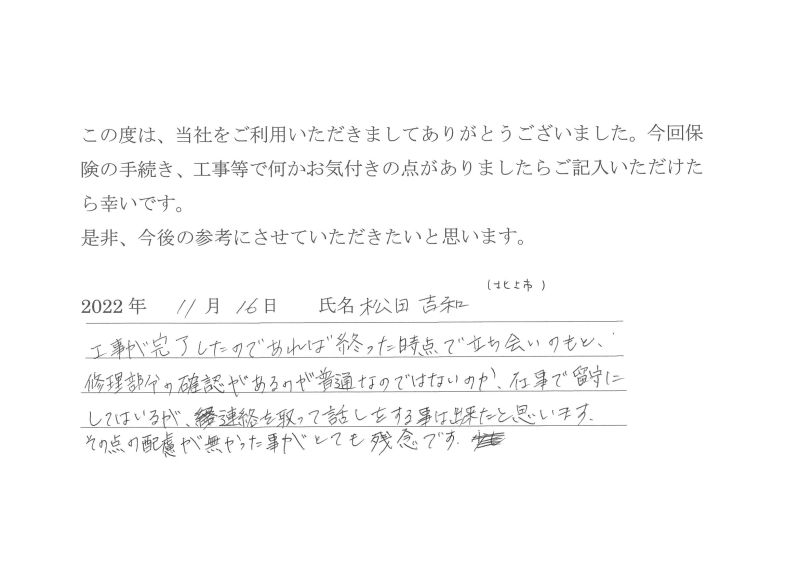 この度は、当社をご利用いただきましてありがとうございました。今回保
険の手続き、工事等で何かお気付きの点がありましたらご記入いただけた
ら幸いです。
是非、今後の参考にさせていただきたいと思います。
(北上市)
2022 年 11 月 16 日 氏名 松田 吉和
工事が完了したのであれば終った時点で立ち会いのもと、
修理部分の確認があるのが普通なのではないのか、仕事で留守に
してはいるが、連絡を取って話しをする事は出来たと思います.
その点の配慮が無かった事がとても残念です.